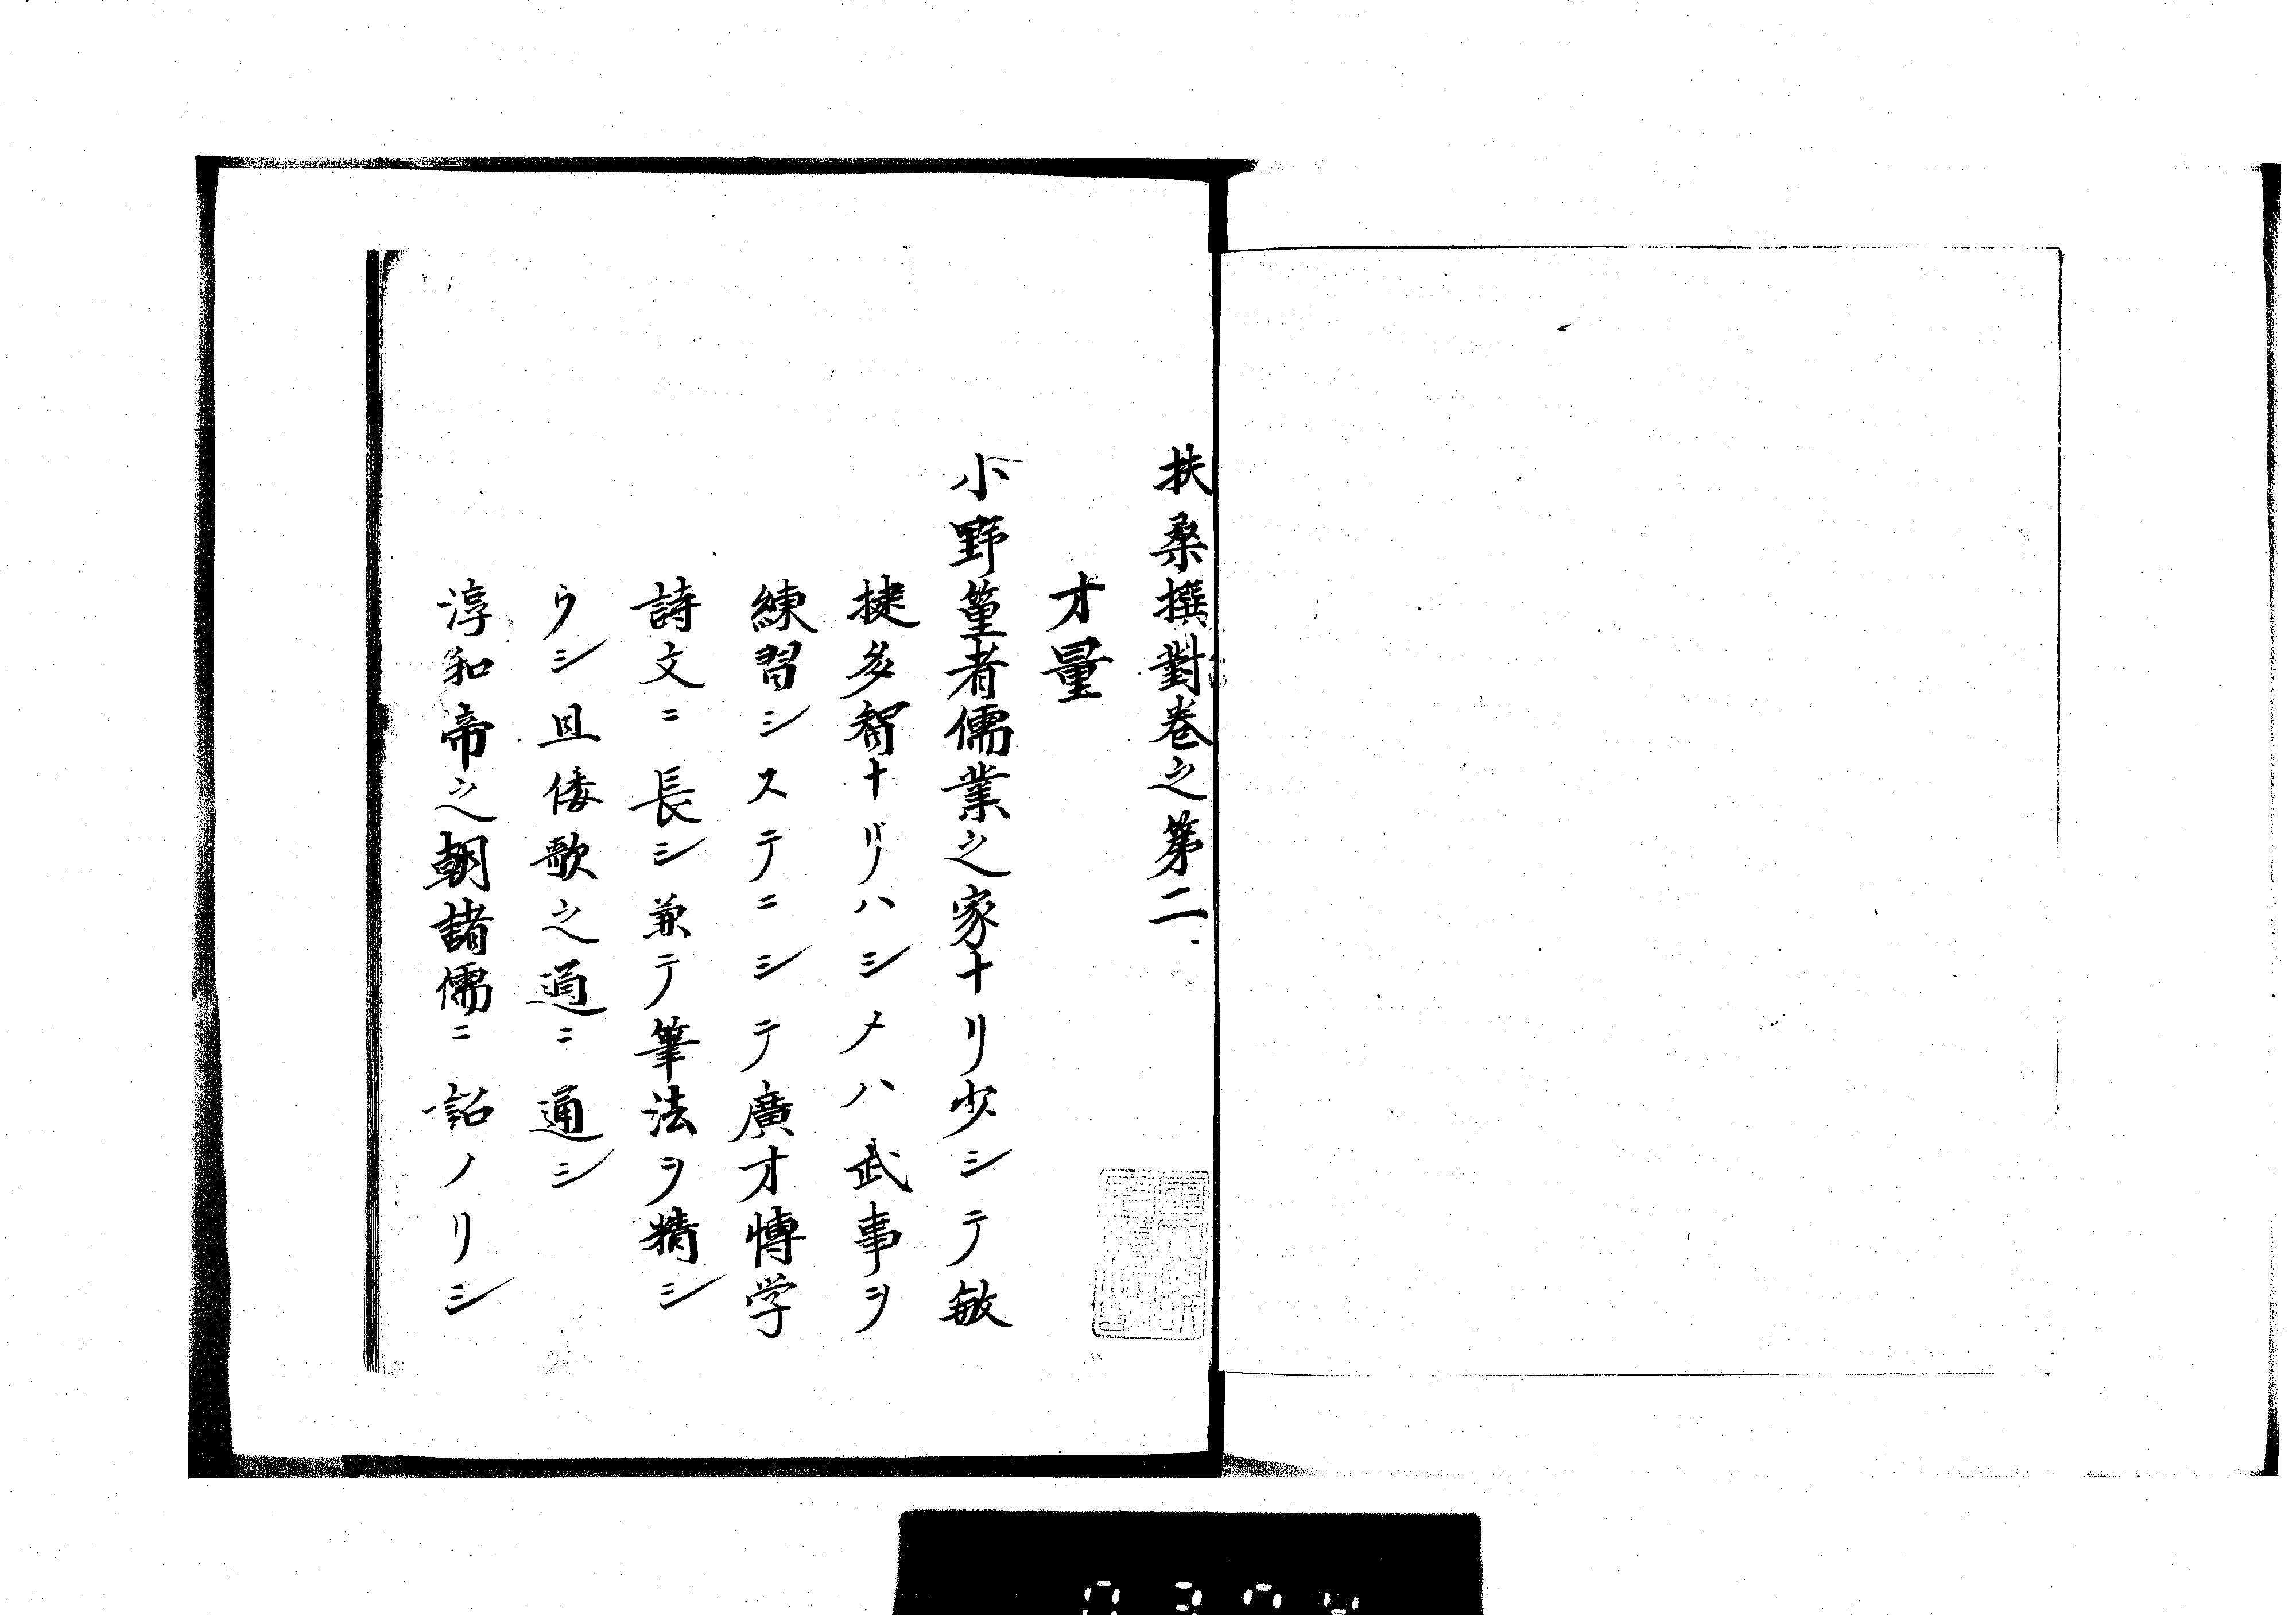 扶桑撰對卷之第二
才量
小野篁者儒業之家ナリ少シテ敏
捷多智ナリハシメハ武事ヲ
練習システニシテ廣才愽学
詩文ニ長シ兼テ筆法ヲ精シ
ウシ且倭歌之道ニ通シ
淳和帝之朝諸儒ニ詔ノリシ